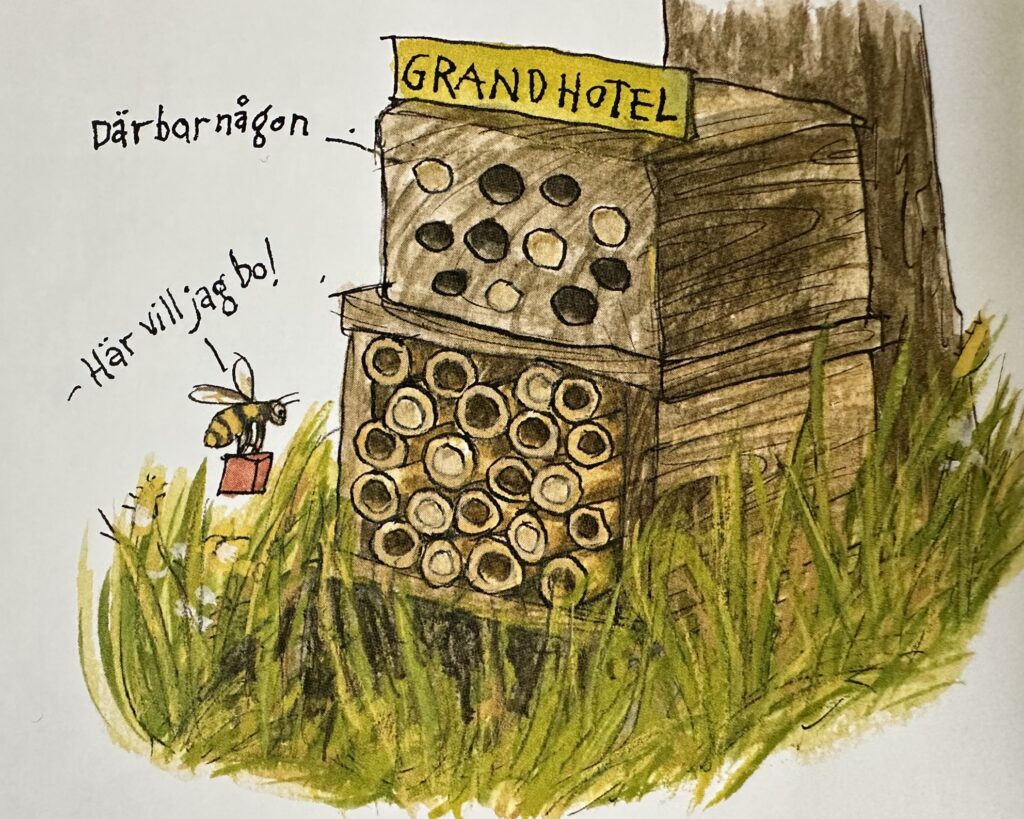 GRAND HOTEL
Där bor någon
- Här vill jag bo!